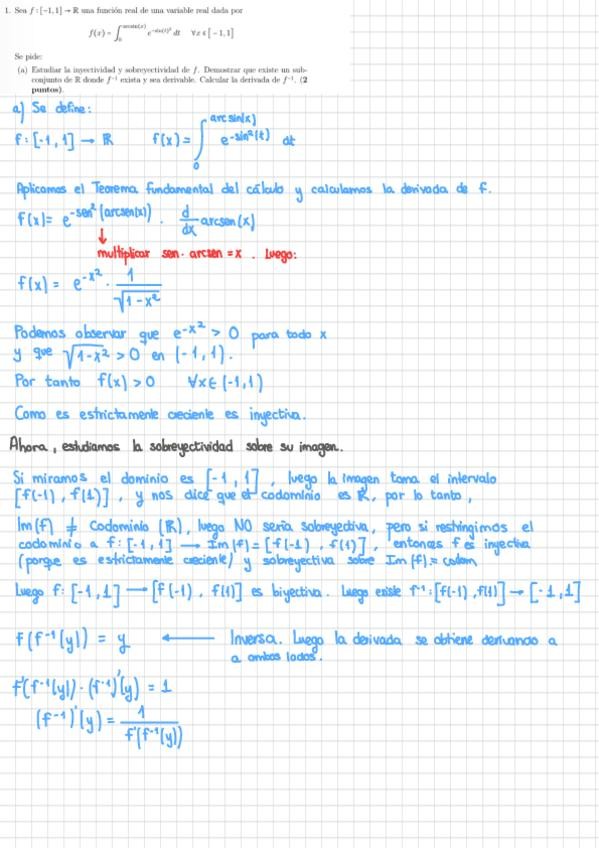 1. Sea f : [-1, 1] → ℝ una función real de una variable real dada por
f(x) = ∫₀^{arcsin(x)} e^{-sin(t)²} dt ∀x ∈ [-1, 1]
Se pide:
(a) Estudiar la inyectividad y sobreyectividad de f. Demostrar que existe un sub-
conjunto de ℝ donde f⁻¹ exista y sea derivable. Calcular la derivada de f⁻¹. (2
puntos).
a) Se define:
f: [-1, 1] → ℝ f(x) = ∫₀^{arcsin(x)} e^{-sin²(t)} dt
Aplicamos el Teorema fundamental del cálculo y calculamos la derivada de f.
f(x) = e^{-sen²(arcsen(x))} · d/dx arcsen(x)
↓
multiplicar sen · arcsen = x . Luego:
f(x) = e^{-x²} · 1/√(1-x²)
Podemos observar que e^{-x²} > 0 para todo x
y que √(1-x²) > 0 en (-1, 1).
Por tanto f(x) > 0 ∀x ∈ (-1, 1)
Como es estrictamente creciente es inyectiva.
Ahora, estudiamos la sobreyectividad sobre su imagen.
Si miramos el dominio es [-1, 1], luego la Imagen toma el intervalo
[f(-1), f(1)], y nos dice que el codominio es ℝ, por lo tanto,
Im(f) ≠ Codominio (ℝ), luego NO sería sobreyectiva, pero si restringimos el
codominio a f: [-1, 1] → Im(f) = [f(-1), f(1)], entonces f es inyectiva
(porque es estrictamente creciente) y sobreyectiva sobre Im(f) = codom
Luego f: [-1, 1] → [f(-1), f(1)] es biyectiva. Luego existe f⁻¹: [f(-1), f(1)] → [-1, 1]
f(f⁻¹(y)) = y ← Inversa. Luego la derivada se obtiene derivando a
a ambos lados.
f'(f⁻¹(y)) · (f⁻¹)'(y) = 1
(f⁻¹)'(y) = 1/f'(f⁻¹(y))